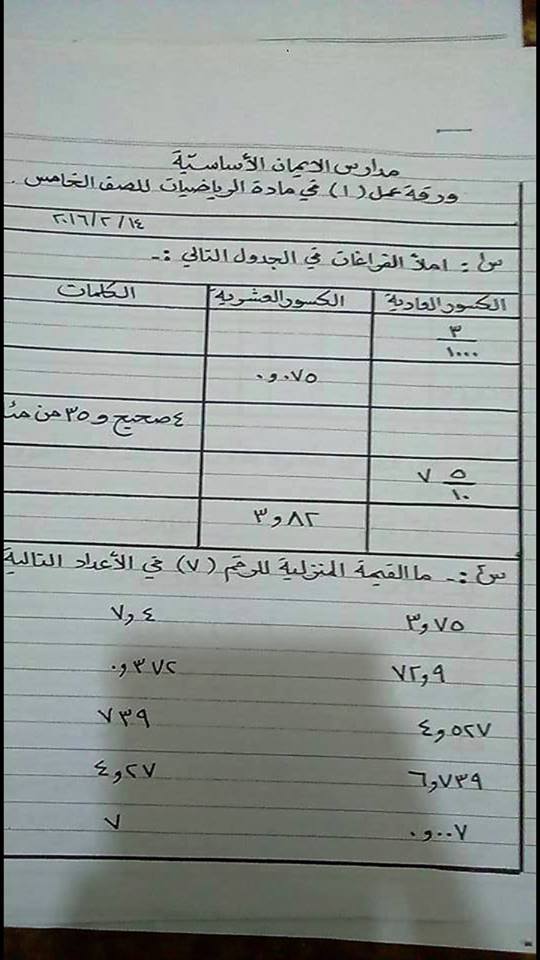 مدارس الايمان الأساسية
ورقة عمل (١) في مادة الرياضيات للصف الخامس.
٢٠١٦/٢/١٤
س١: املأ الفراغات في الجدول التالي :-
الكسور العادية الكسور العشرية الكلمات
٣/١٠٠٠
٠٫٠٧٥
٤ صحيح و ٣٥ من
٧ ٥/١٠
٣٫٨٢
س٢:- ما القيمة المنزلية للرقم (٧) في الأعداد التالية
٣٫٧٥ ٧٫٤
٧٢٫٩ ٠٫٣٧٢
٤٫٥٢٧ ٧٣٩
٦٫٧٣٩ ٤٫٢٧
٠٫٠٠٧ ٧